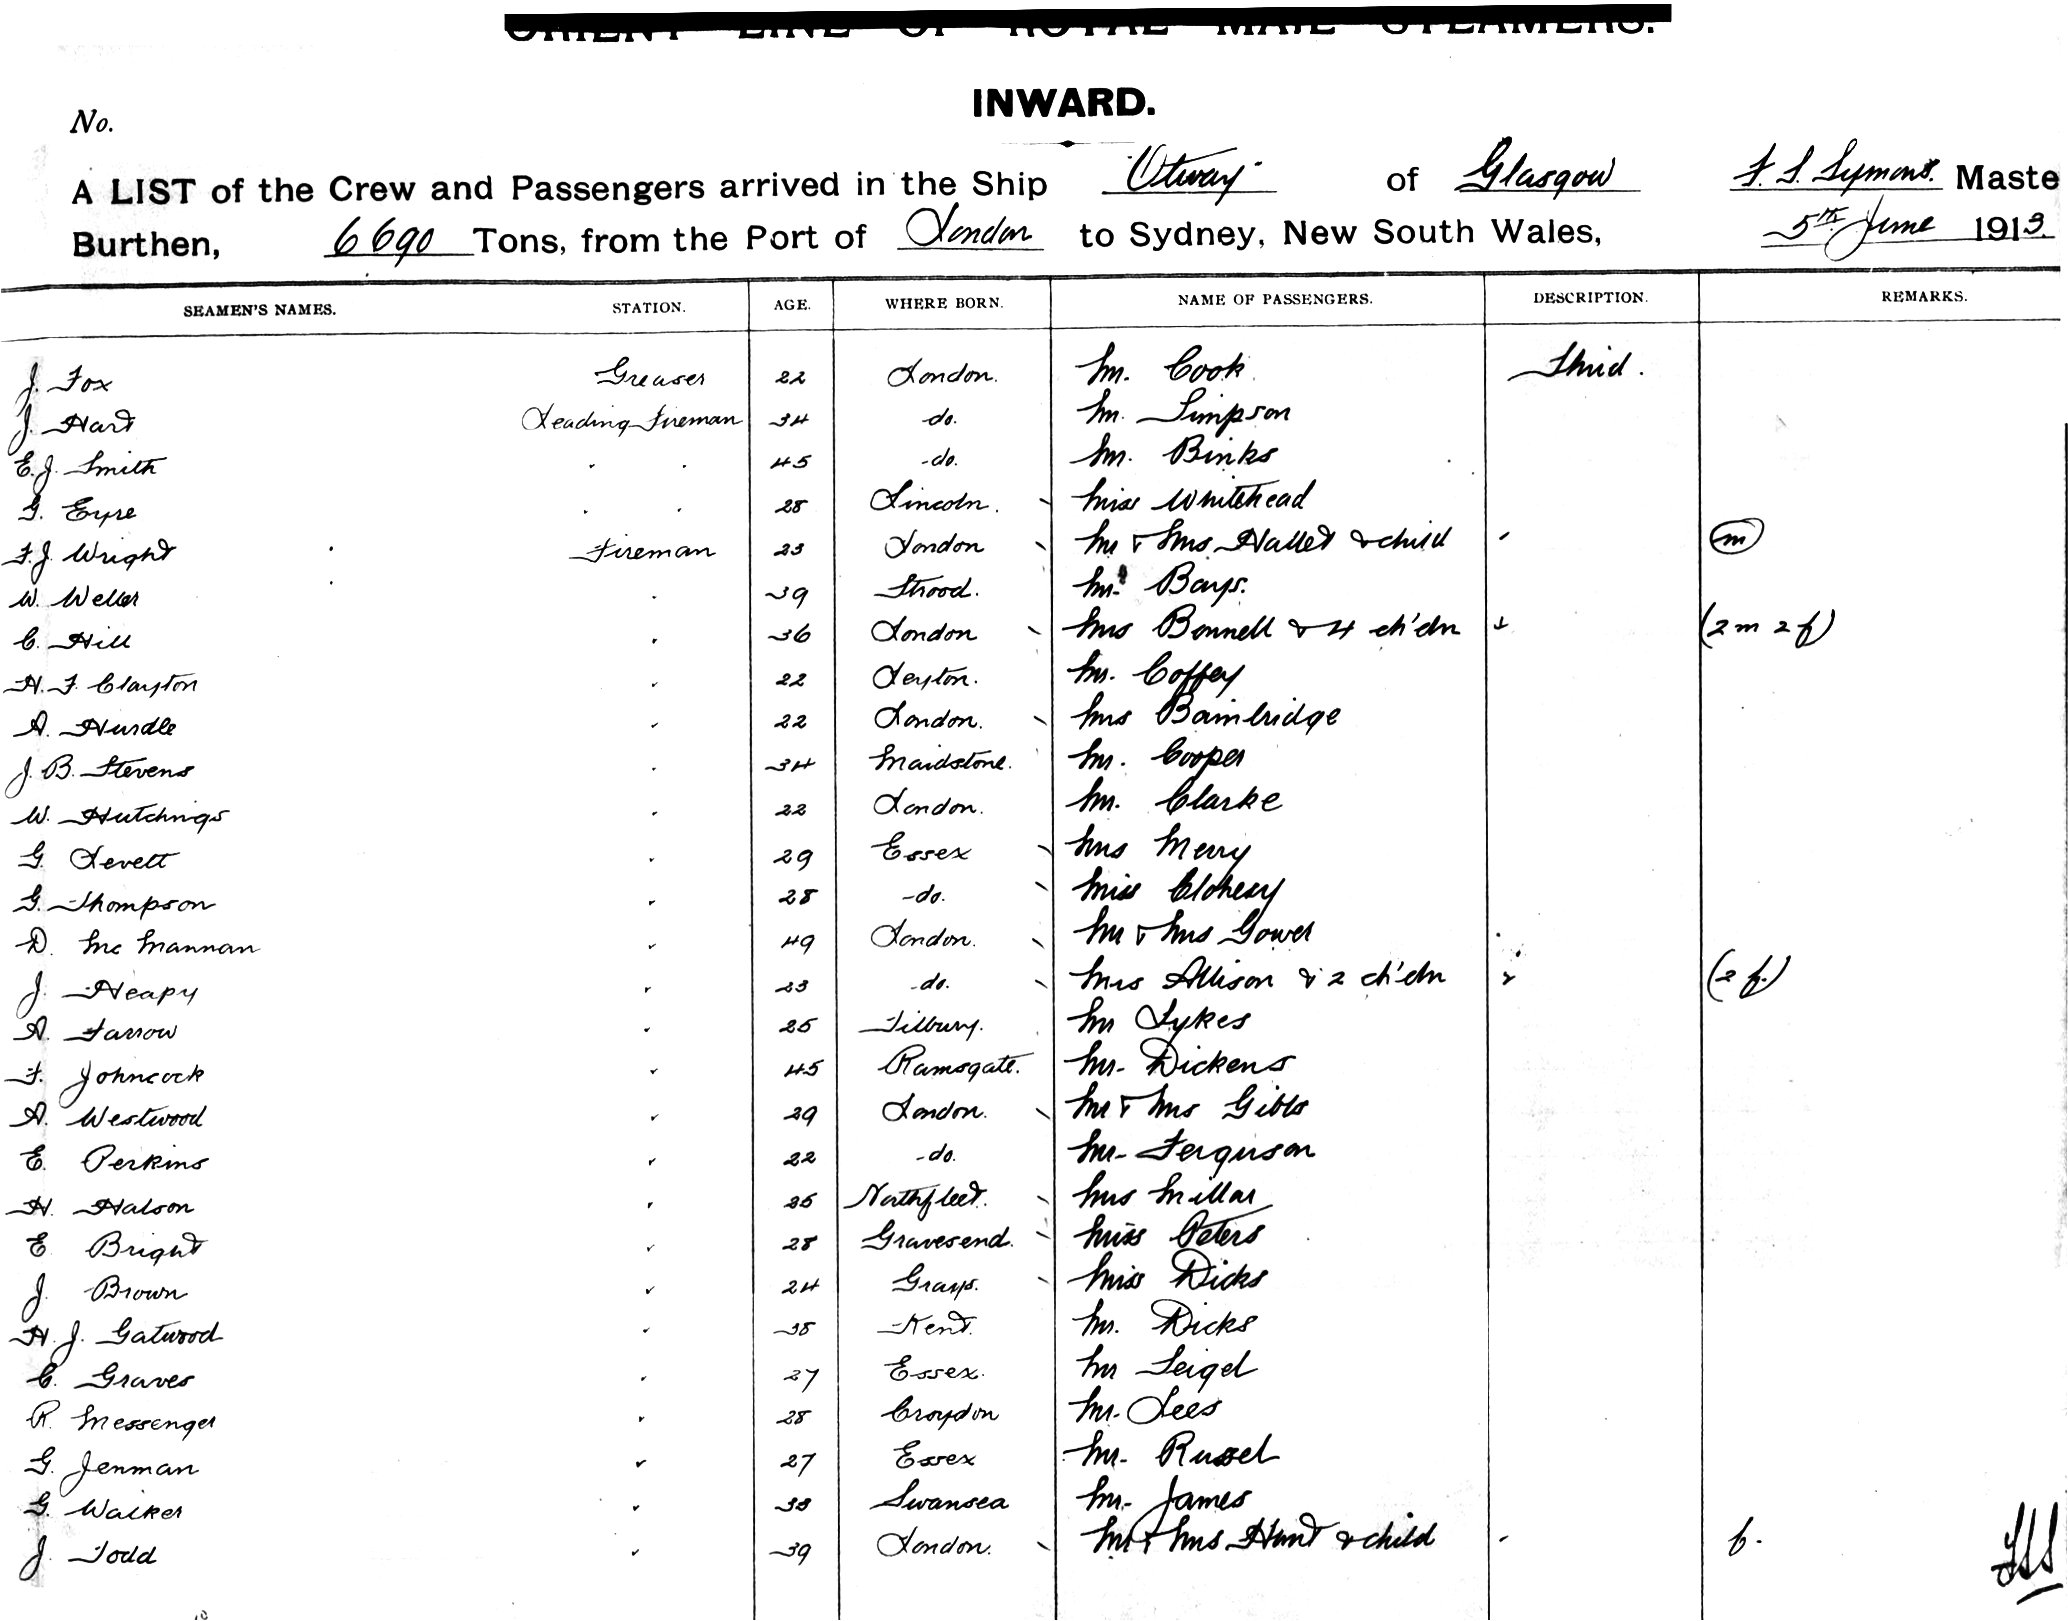 ORIENT LINE OF ROYAL MAIL STEAMERS.
INWARD.
No.
A LIST of the Crew and Passengers arrived in the Ship "Otway" of Glasgow F. S. Symons. Maste
Burthen, 6690 Tons, from the Port of London to Sydney, New South Wales, 5th June 1913.
SEAMEN'S NAMES. STATION. AGE. WHERE BORN. NAME OF PASSENGERS. DESCRIPTION. REMARKS.
J. Fox Greaser 22 London. Mr. Cook Third.
J. Hart Leading Fireman 34 -do. Mr. Simpson
E. J. Smith 45 -do. Mr. Binks
G. Eyre 28 Lincoln. Miss Whitehead
F. J. Wright Fireman 23 London Mr & Mrs Hallet & child m
W. Weller 39 Strood. Mr. Bays.
C. Hill 36 London Mrs Bennell & 4 ch'dn (2 m 2 f)
H. F. Clayton 22 Leyton. Mr. Coffey
A. Hurdle 22 London. Mrs Bainbridge
J. B. Stevens 34 Maidstone. Mr. Cooper
W. Hutchings 22 London. Mr. Clarke
G. Levett 29 Essex Mrs Merry
G. Thompson 28 -do. Miss Clohesy
D. McMannan 49 London. Mr & Mrs Gower
J. Heapy 23 -do. Mrs Allison & 2 ch'dn (2 f.)
A. Farrow 25 Tilbury. Mr Sykes
F. Johncock 45 Ramsgate. Mr. Dickens
A. Westwood 29 London. Mr & Mrs Gibbs
E. Perkins 22 -do. Mr. Ferguson
H. Halson 25 Northfleet. Mrs Millar
E. Bright 28 Gravesend. Miss Peters
J. Brown 24 Grays. Miss Dicks
H. J. Gatwood 38 Kent. Mr. Dicks
C. Graves 27 Essex. Mr Seigel
R. Messenger 28 Croydon Mr. Lees
G. Jenman 27 Essex Mr. Russel
G. Walker 33 Swansea Mr. James
J. Todd 39 London. Mr & Mrs Hunt & child f.
FSS